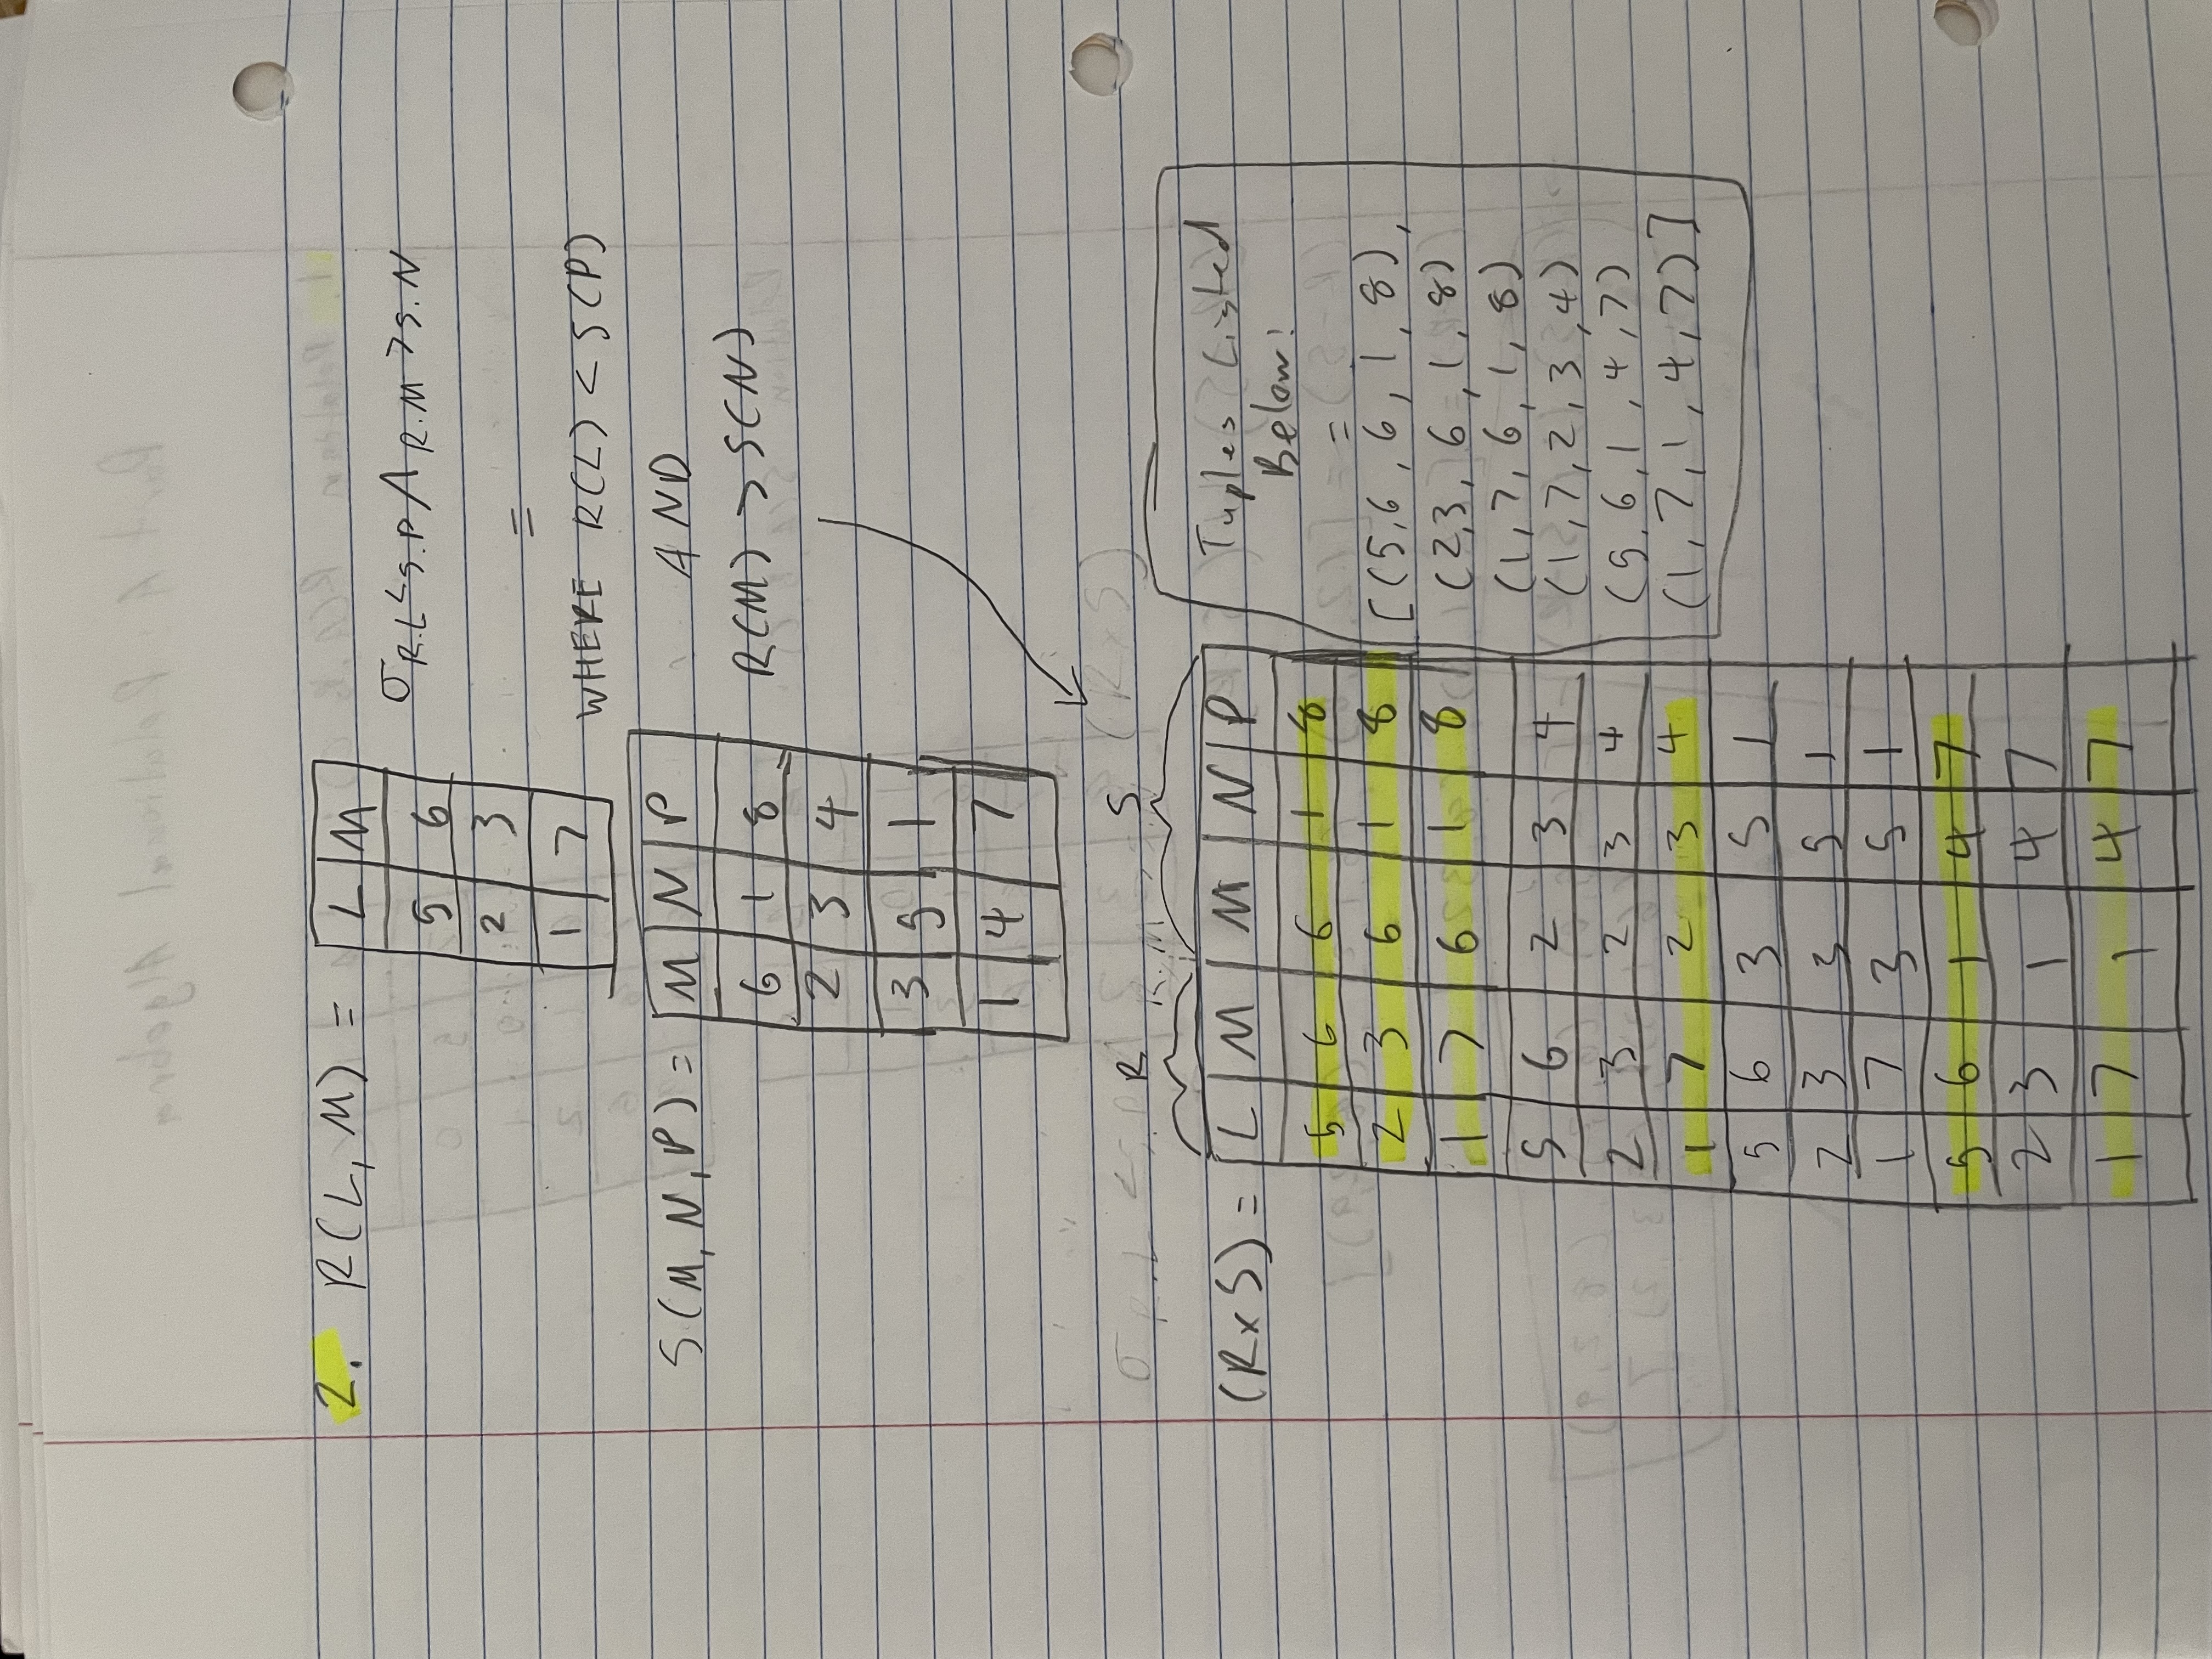 2. R(L, M) =
L M
5 6
2 3
1 7
σ R.L < S.P ∧ R.M > S.N
=
WHERE R(L) < S(P)
AND
R(M) > S(N)
S(M, N, P) =
M N P
6 1 8
2 3 4
3 5 1
1 4 7
R S
(R x S) =
L M M N P
5 6 6 1 8
2 3 6 1 8
1 7 6 1 8
5 6 2 3 4
2 3 2 3 4
1 7 2 3 4
5 6 3 5 1
2 3 3 5 1
1 7 3 5 1
5 6 1 4 7
2 3 1 4 7
1 7 1 4 7
Tuples Listed
Below:
=
[(5,6, 6, 1, 8),
(2,3, 6, 1, 8)
(1, 7, 6, 1, 8)
(1, 7, 2, 3, 4)
(5, 6, 1, 4, 7)
(1, 7, 1, 4, 7)]